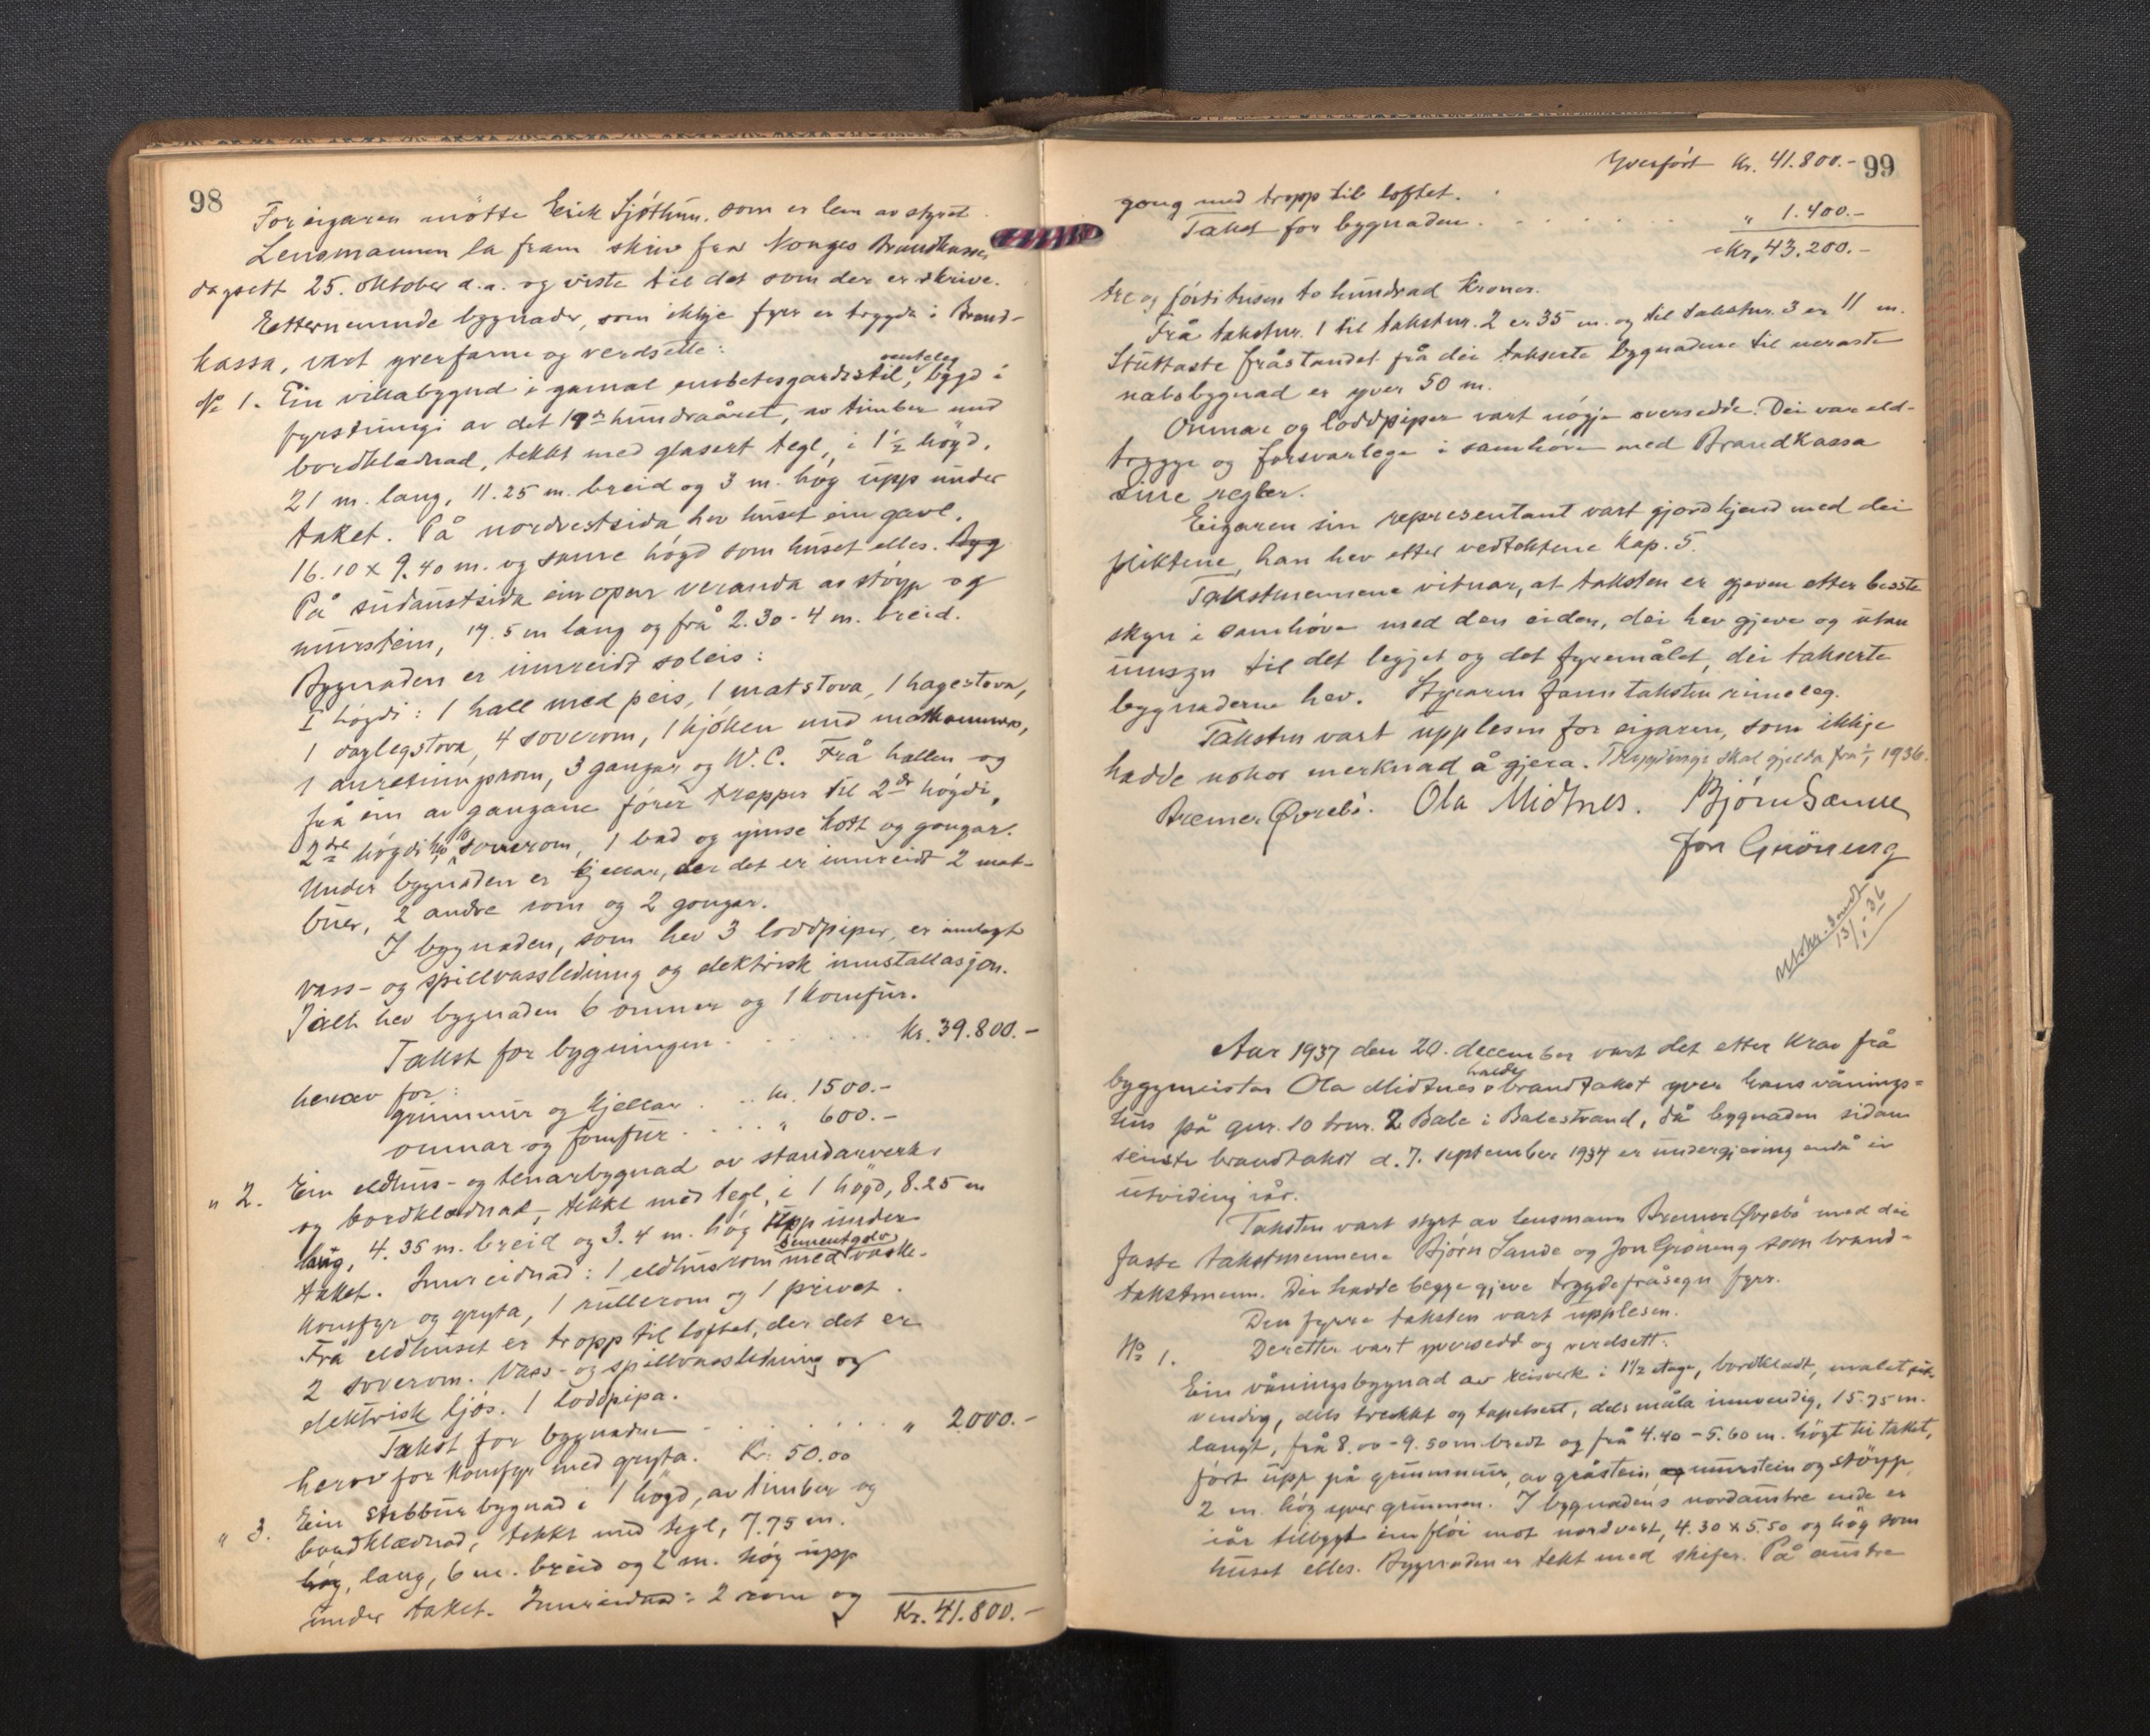 98
For eigaren møtte Erik Sjøthun, som er lem av styret
Lensmannen la fram skriv frå Norges Brandkasse,
dagsett 25. oktober d.a. og viste til det som der er skrive.
Etternemnde bygnader, som ikkje fyrr er trygda i Brand-
kassa, vart yverfarne og verdsette:
№ 1. Ein villabygnad i gamal embetesgardsstil, venteleg bygd i
fyrstningi av det 19de hundraåret, av timber med
bordklædnad, tekkt med glasert tegl, i 1½ högd,
21 m. lang, 11.25 m. breid og 3 m. høg upp under
taket. På nordvestsida hev huset ein gavl,
16.10 x 9.40 m. og same högd som huset elles. Byg
På sudaustsida ein open veranda av støyp og
murstein, 17.5 m lang og frå 2.30 - 4 m. breid.
Bygnaden er innreidt soleis:
I högdi: 1 hall med peis, 1 matstova, 1 hagestova,
1 daglegstova, 4 soverom, 1 kjøken med matkammers,
1 anretningsrom, 3 gangar og W.C. Frå hallen og
frå ein av gangane förer trapper til 2dr högdi,
2dre högdi: soverom, 1 bad og ymse kott og gongar.
Under bygnaden er kjellar, der det er innreidt 2 mat-
buer, 2 andre rom og 2 gongar.
I bygnaden, som hev 3 loddpipor, er innlagt
vass- og spillvassledning og elektrisk innstallasjon.
Ialt hev bygnaden 6 omnar og 1 komfur.
Takst for bygningen . . . . . . kr. 39.800.-
herav for:
grunnmur og kjellar . . . kr. 1500.-
omnar og komfur . . . . " 600.-
" 2. Ein eldhus- og tenarbygnad av standarverk,
og bordklædnad, tekkt med tegl, i 1 högd, 8.25 m
lang, 4.35 m. breid og 3.4 m. høg upp under
taket. Innreidnad: 1 eldhusrom med sementgolv vaske-
komfyr og gryta, 1 rullerom og 1 privet.
Frå eldhuset er tropp til loftet, der det er
2 soverom. Vass- og spillvassledning og
elektrisk ljós. 1 loddpipa.
Takst for bygnaden . . . . . . . " 2000.-
herav for komfyr med gryta. Kr. 50.00
" 3. Ein stabbursbygnad i 1 högd, av timber og
bordklædnad, tekkt med tegl, 7.75 m.
høg, lang, 6 m. breid og 2 m. høg upp
under taket. Innreidnad: 2 rom og
Kr. 41.800.-
99
Yverført Kr. 41.800.-
gong med tropp til loftet.
Takst for bygnaden . . . . . . . " 1.400.-
Kr. 43.200.-
tre og fórti tusen to hundrad Kroner.
Frå takstnr. 1 til takstnr. 2 er 35 m. og til takstnr. 3 er 11 m.
Stuttaste fråstandet frå dei takserte bygnadene til næraste
nabobygnad er yver 50 m.
Omnar og loddpipor vart nøgje oversedde. Dei var eld-
trygge og forsvarlege i samhøve med Brandkassa
sine regler.
Eigaren sin representant vart gjord kjend med dei
pliktene, han hev etter vedtektene Kap. 5.
Takstmennene vitnar, at taksten er gjeven etter beste
skyn i samhøve med den eiden, dei hev gjeve og utan
umsyn til det legjet og det fyremålet, dei takserte
bygnaderne hev. Styraren fann taksten rimeleg.
Taksten vart upplesen for eigaren, som ikkje
hadde nokor merknad å gjera. Tryggingi skal gjelda frå 1/1 1936.
Bremer Øvrebö. Ola Midtnes. Bjørn Sande
Jon Grøneng
Utskr. sendt
13/1-36
Aar 1937 den 20. december vart det etter krav frå
byggmeister Ola Midtnes halde brandtakst yver hans vånings-
hus på gnr. 10 brnr. 2 Bale i Balestrand, då bygnaden sidan
seinste brandtakst d. 7. september 1934 er undergjeving endå ei
utviding iår.
Taksten vart styrt av lensmann Bremer Øvrebö med dei
faste takstmennene Bjørn Sande og Jon Grøneng som brand-
takstmenn. Dei hadde begge gjeve trygdefråsegn fyrr.
Den fyrre taksten vart upplesen.
Deretter vart yversedd og verdsett:
№ 1.
Ein våningsbygnad av reisverk i 1½ etage, bordklædt, malet ut-
vendig, dels trekkt og tapetsert, dels måla innvendig, 15.75 m.
langt, frå 8.00 - 9.50 m. bredt og frå 4.40 - 5.60 m. högt til taket,
fört upp på grunnmur, av gråstein, murstein og støyp
2 m. høg yver grunnen. I bygnadens nordaustre ende er
iår tilbygt ein flöi mot nordvest, 4.30 x 5.50 og høg som
huset elles. Bygnaden er tekt med skifer. På austre